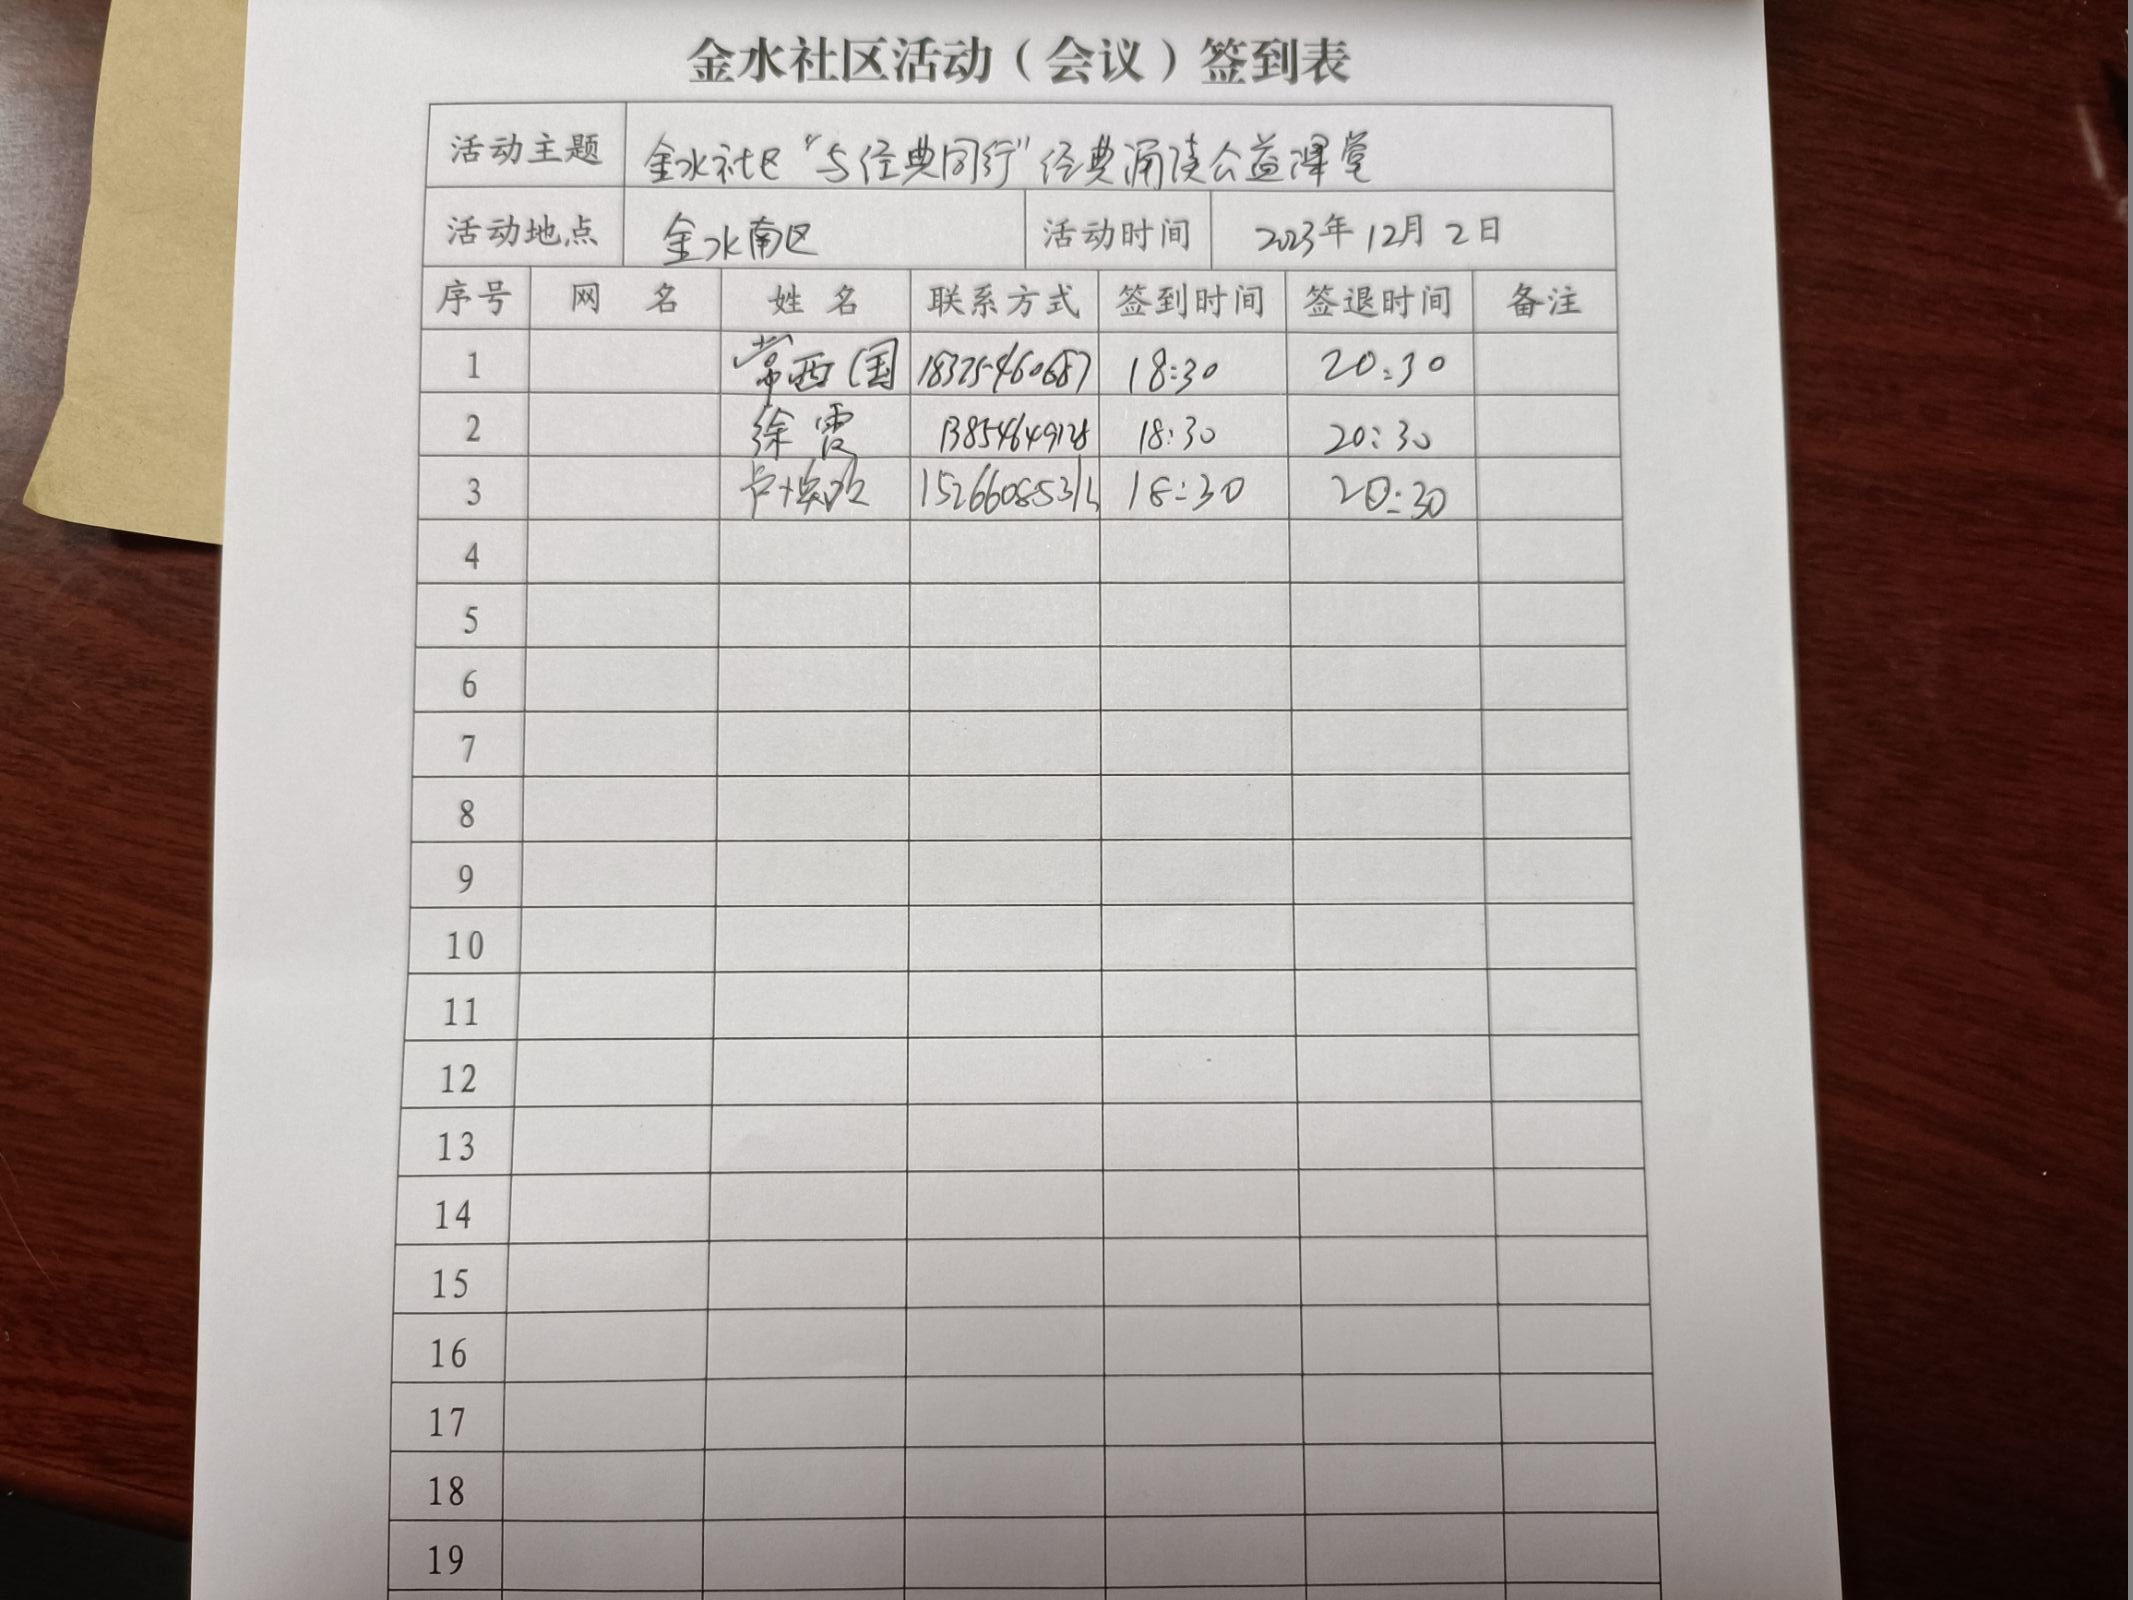 金水社区活动（会议）签到表
活动主题 金水社区“与经典同行”经典诵读公益课堂
活动地点 金水南区 活动时间 2023年12月2日
序号 网 名 姓 名 联系方式 签到时间 签退时间 备注
1 常西国 18325460687 18:30 20:30
2 徐霞 13854649128 18:30 20:30
3 18:30 20:30
4
5
6
7
8
9
10
11
12
13
14
15
16
17
18
19